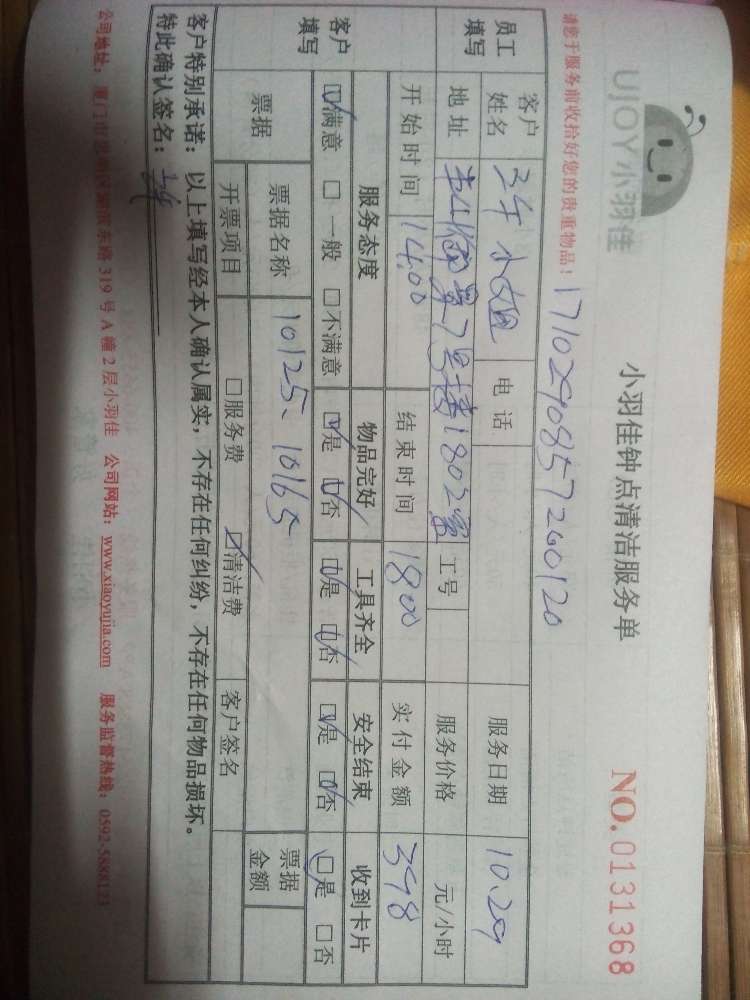 UJOY小羽佳
小羽佳钟点清洁服务单
NO.0131368
请您于服务前收拾好您的贵重物品！
1710290857260120
员工填写
客户姓名 小姐 电话 服务日期 10.29
地址 7号楼1802室 工号 服务价格 元/小时
开始时间 14:00 结束时间 18:00 实付金额 398
客户填写
服务态度 物品完好 工具齐全 安全结束 收到卡片
☑满意 □一般 □不满意 ☑是 ☑否 ☑是 ☑否 ☑是 ☑否 ☑是 □否
票据 票据名称 10125、10165 票据金额
开票项目 □服务费 ☑清洁费 客户签名
客户特别承诺：以上填写经本人确认属实，不存在任何纠纷，不存在任何物品损坏。
特此确认签名：
公司地址：厦门市思明区 东路319号A幢2层小羽佳 公司网站：www.xiaoyujia.com 服务监督热线：0592-5888123